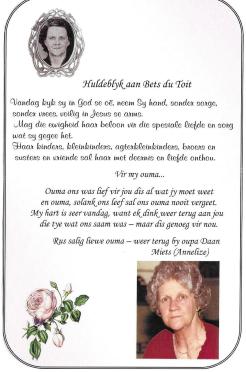 Huldeblyk aan Bets du Toit
Vandag kyk sy in God se oë, neem Sy hand, sonder sorge,
sonder vrees, veilig in Jesus se arms.
Mag die ewigheid haar beloon vir die spesiale liefde en sorg
wat sy gegee het.
Haar kinders, kleinkinders, agterkleinkinders, broers en
susters en vriende sal haar met deernis en liefde onthou.
Vir my ouma...
Ouma ons was lief vir jou dis al wat jy moet weet
en ouma, solank ons leef sal ons ouma nooit vergeet.
My hart is seer vandag, want ek dink weer terug aan jou
die tye wat ons saam was – maar dis genoeg vir nou.
Rus salig liewe ouma – weer terug by oupa Daan
Miets (Annelize)